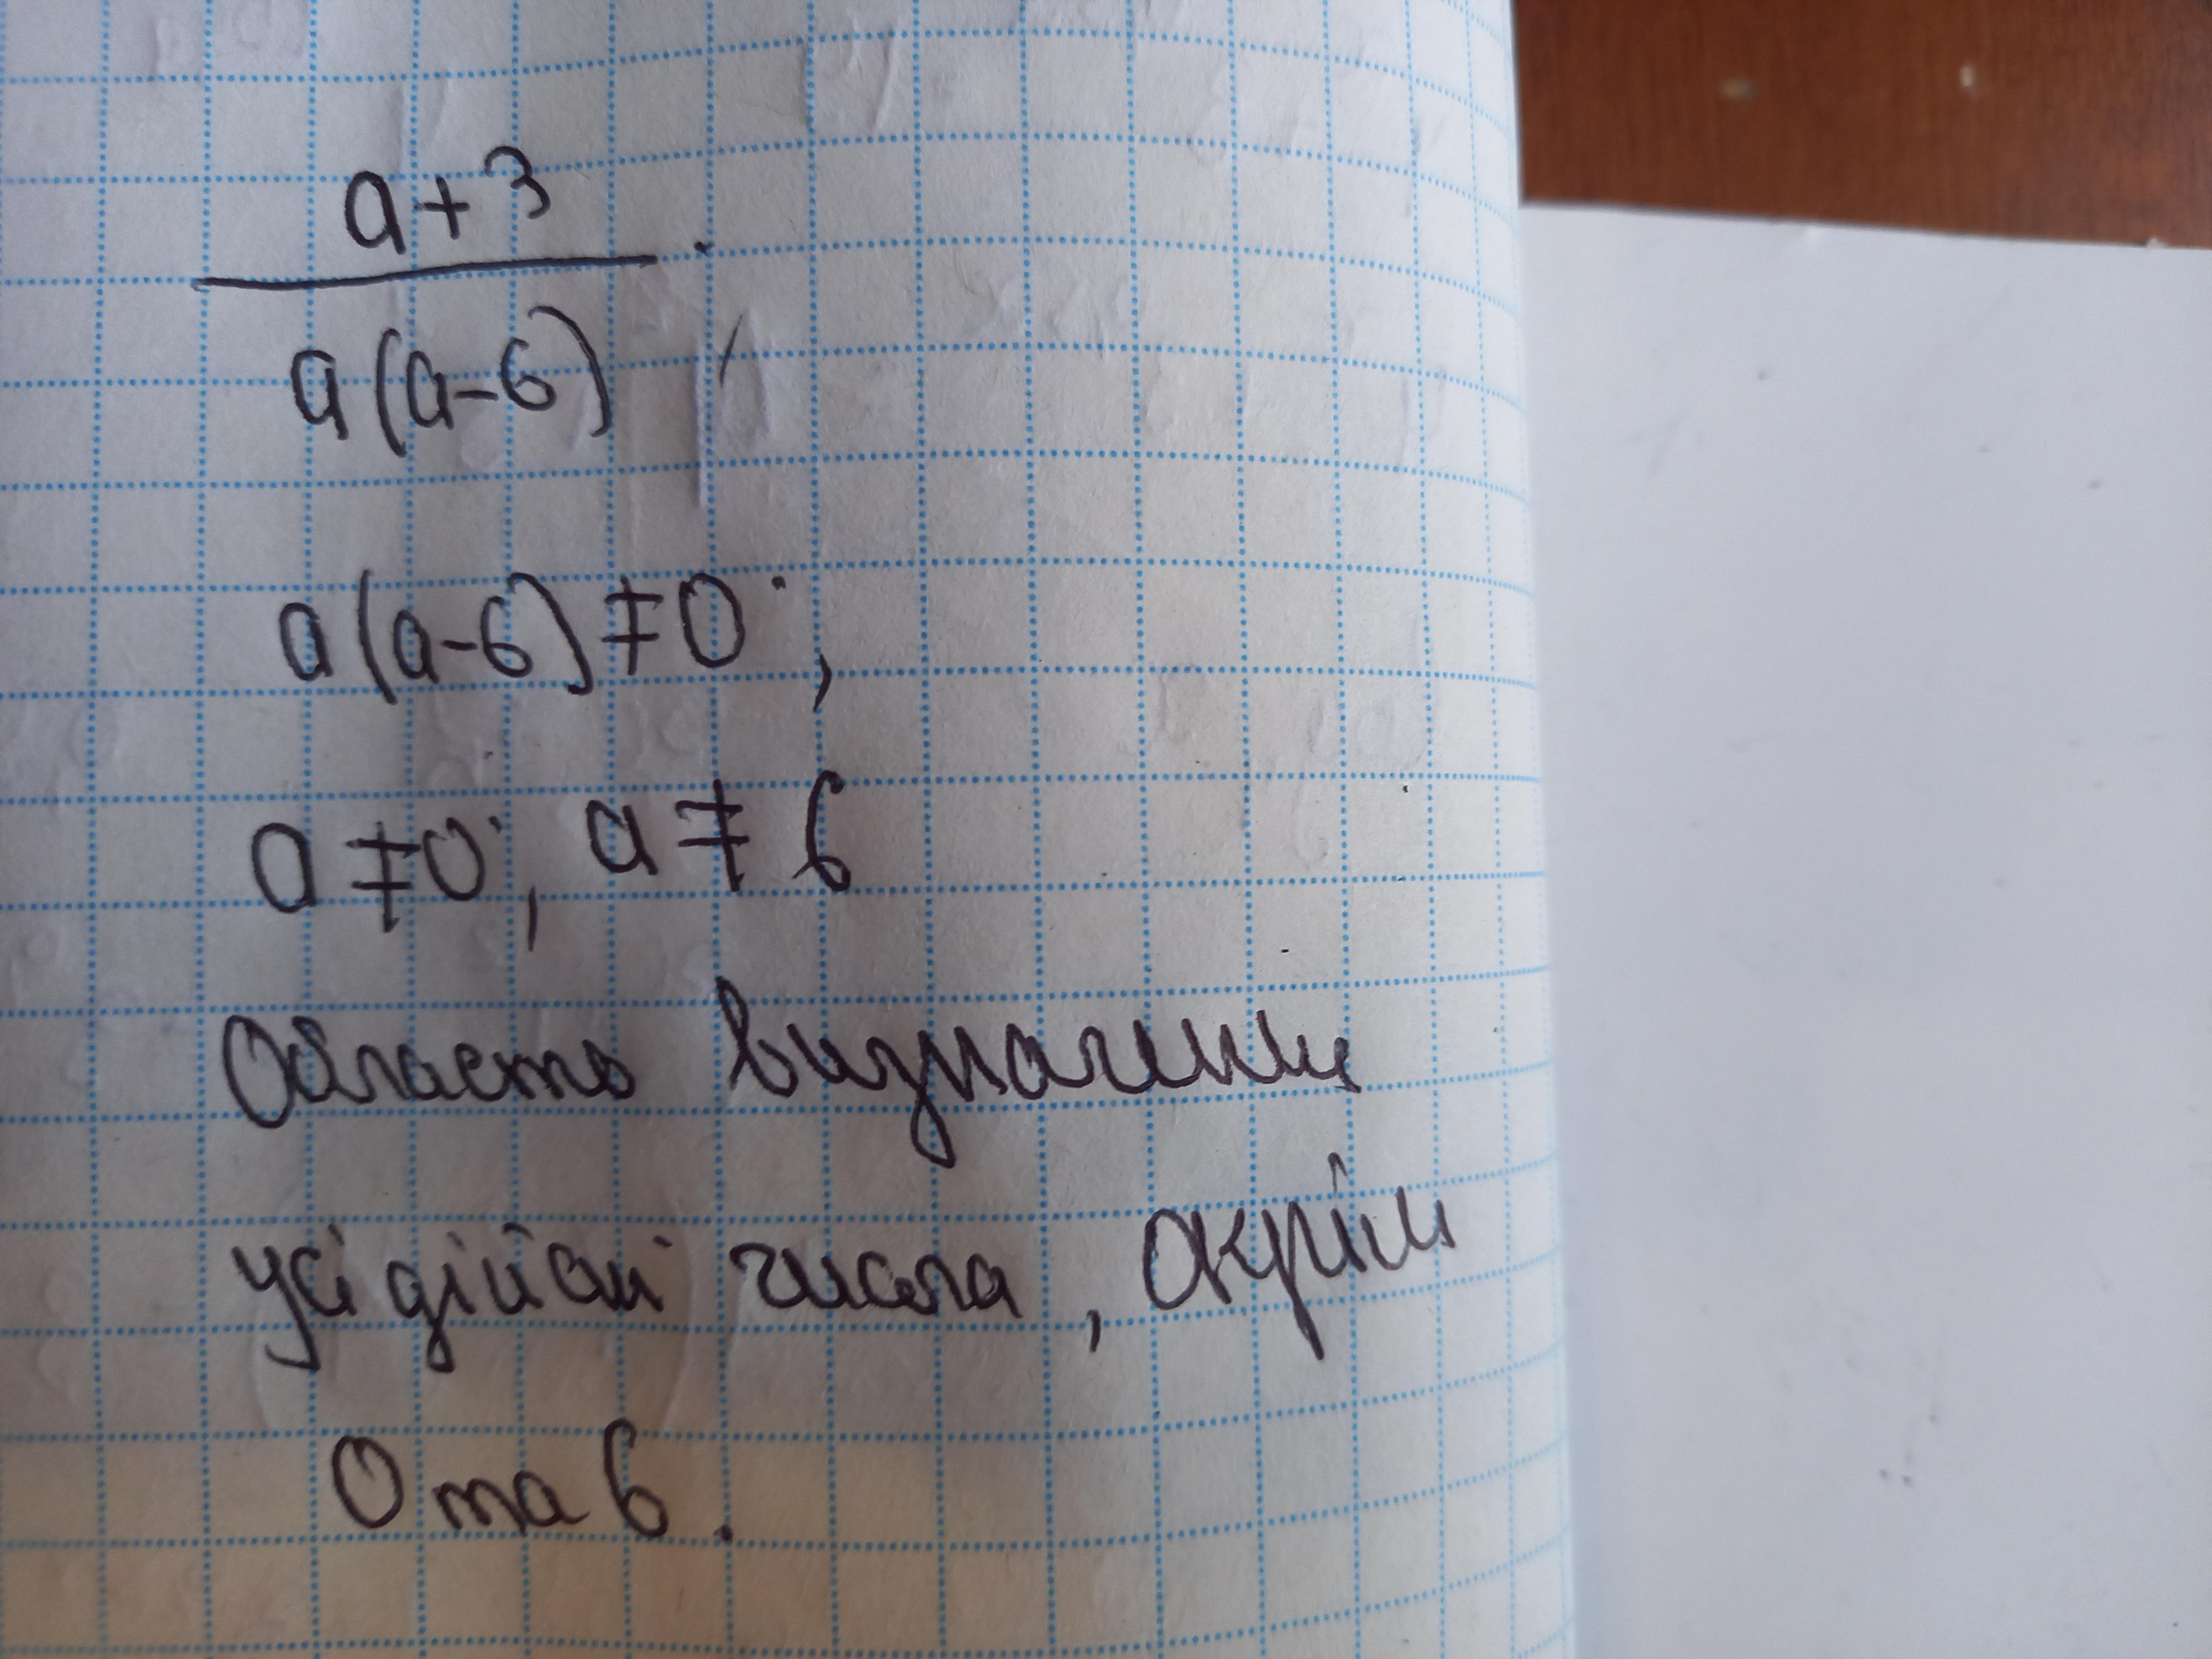 a+3
a(a-6) ;
a(a-6)≠0;
a≠0; a≠6
Область визначення
усі дійсні числа, окрім
0 та 6.